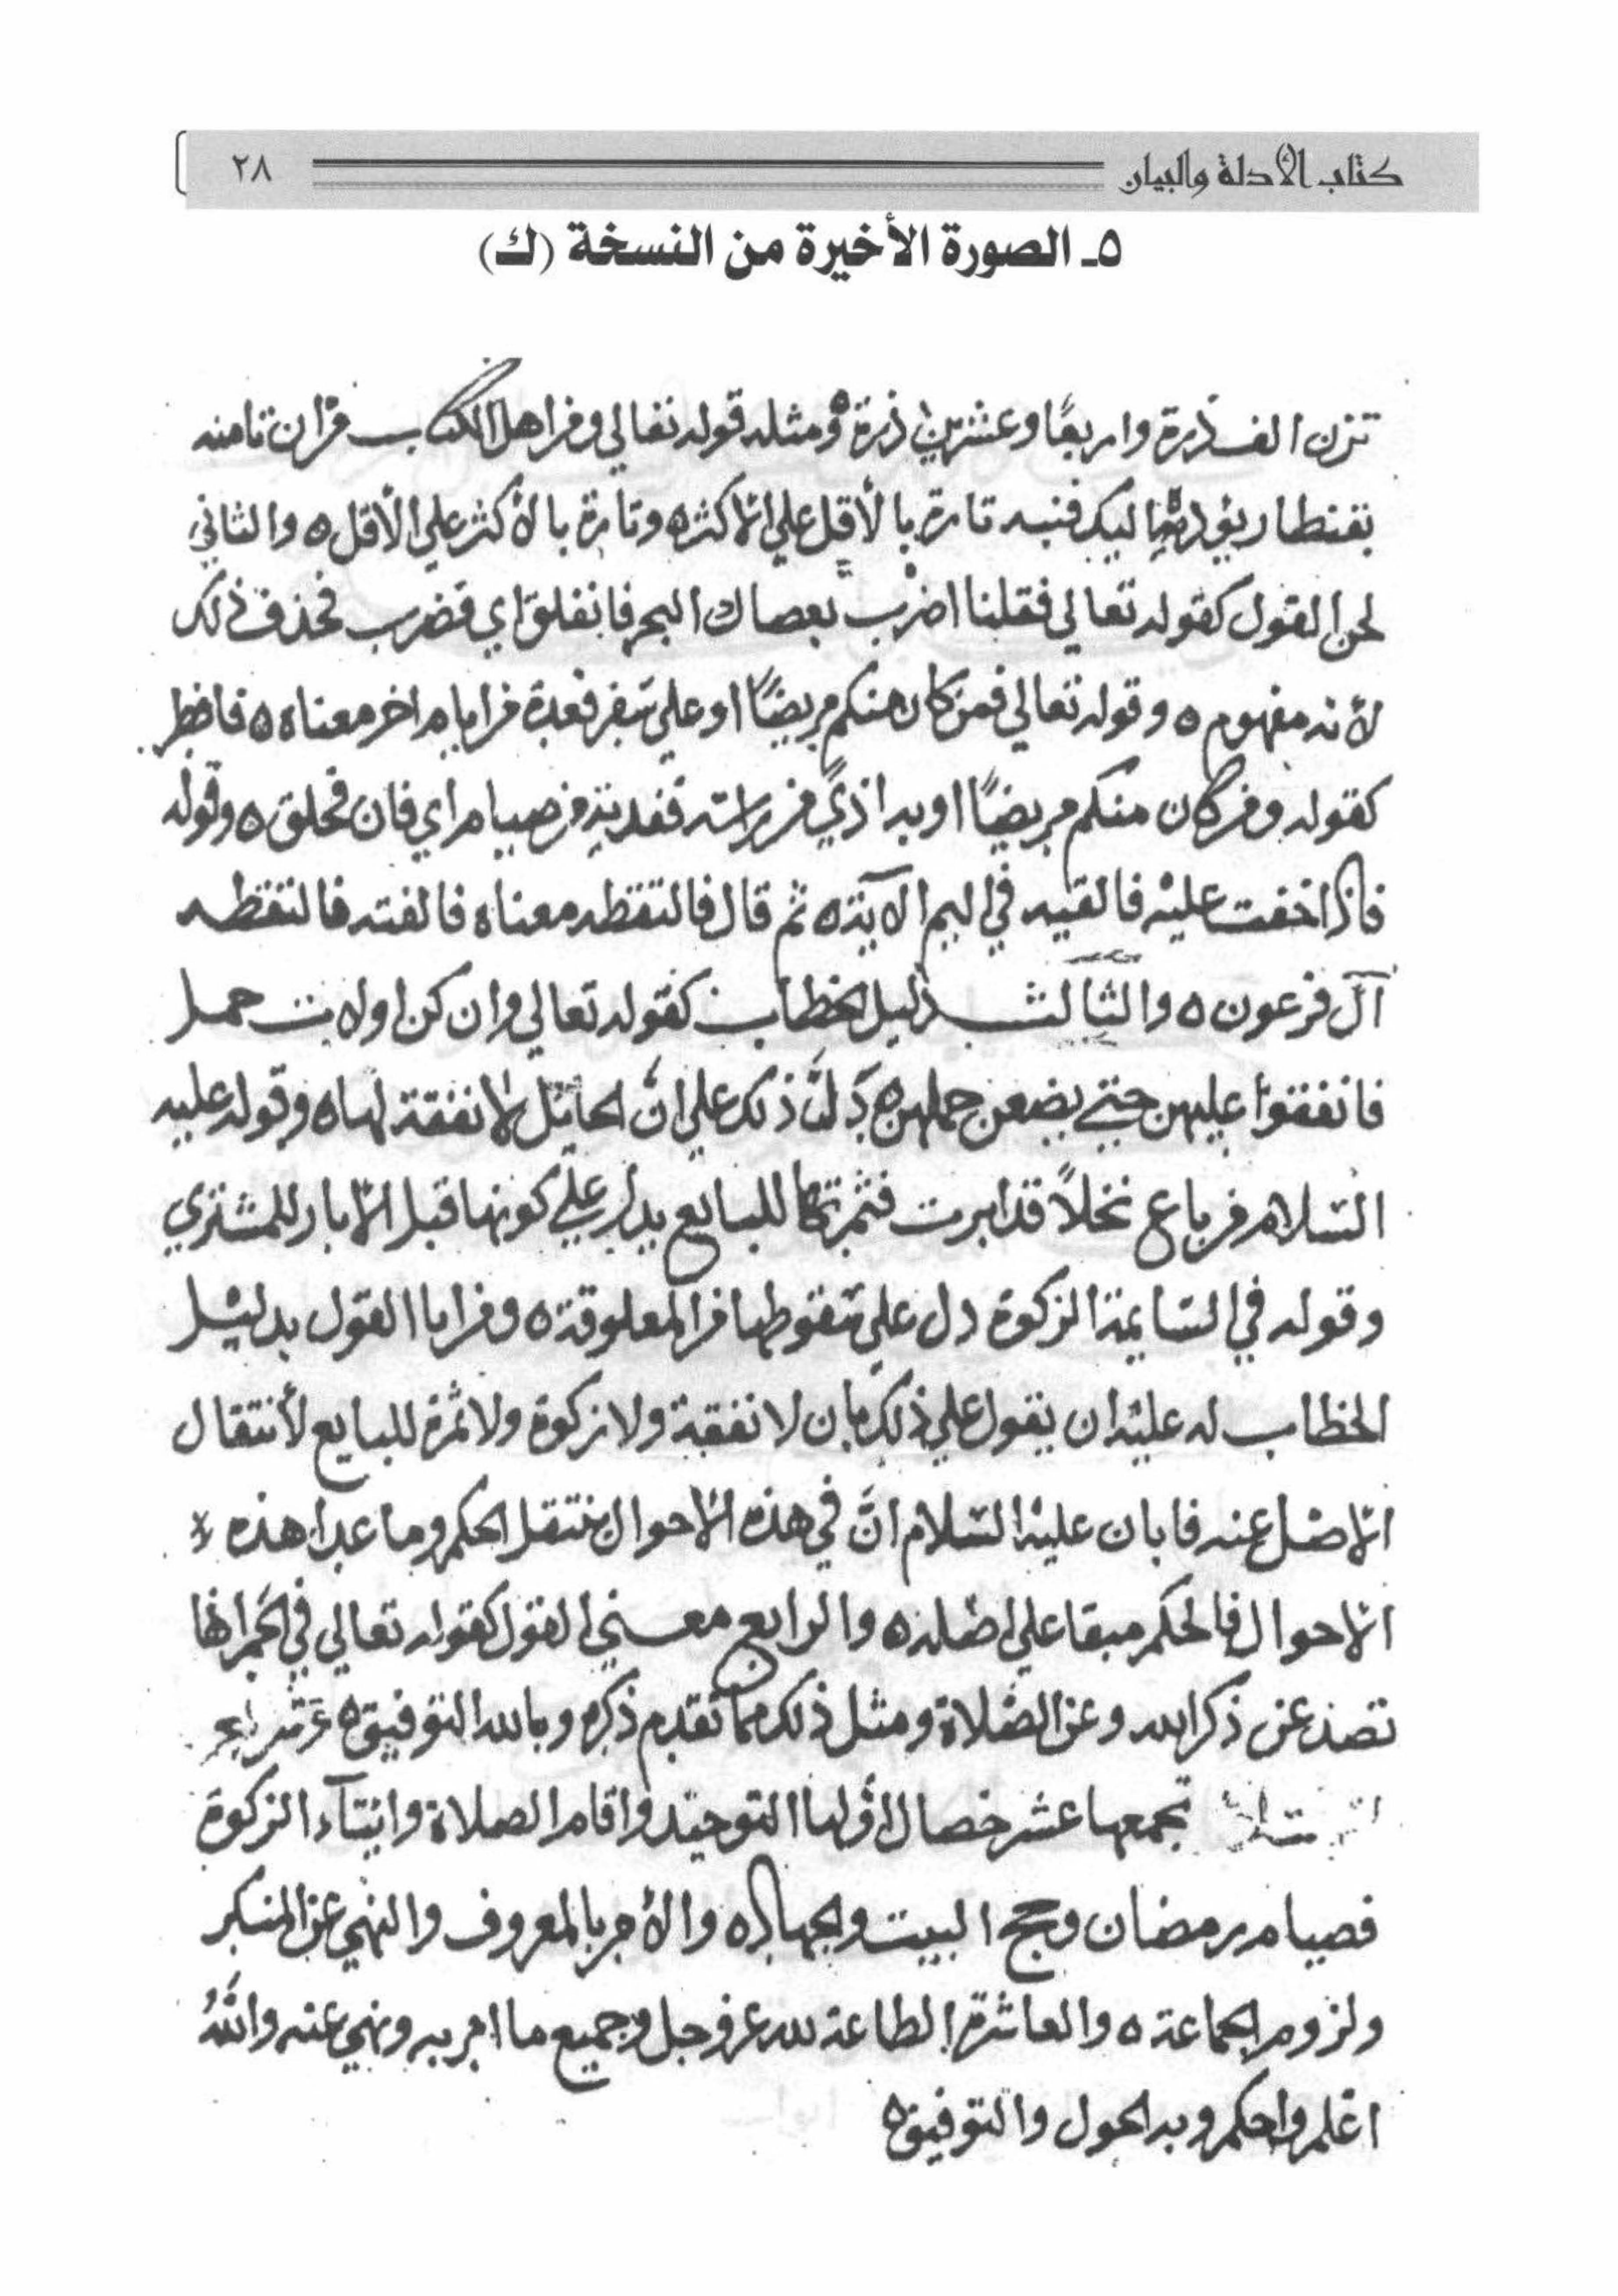 كتاب الأدلة والبيان ٢٨
٥ـ الصورة الأخيرة من النسخة (ك)
تزن الف ذرة واربعًا وعشرين ذرة ومثله قوله تعالي ومن اهل الكتاب من ان تامنه
بقنطار يؤده اليك فنبه تارة بالأقل علي الاكثر ه وتارة بالأكثر علي الأقل ه والثاني
لحن القول كقوله تعالي فقلنا اضرب بعصاك البحر فانفلق اي فضرب فحذف ذلك
لأنه مفهوم ه وقوله تعالي فمن كان منكم مريضًا او علي سفر فعدة من ايام اخر معناه ه فافطر
كقوله ومن كان منكم مريضًا او به اذيً من راسه ففدية من صيام اي فان فحلق ه وقوله
فاذا خفت عليه فالقيه في اليم الآية ه ثم قال فالتقطه معناه فالقته فالتقطه
آل فرعون ه والثالث دليل الخطاب كقوله تعالي وان كن اولات حمل
فانفقوا عليهن حتي يضعن حملهن ه دَلَّ ذلك علي انَّ الحايل لا نفقة لها ه وقوله عليه
السلام من باع نخلاً قد ابرت فثمرتها للبايع يدل علي كونها قبل الابار للمشتري
وقوله في السايمة الزكوة دل علي سقوطها من المعلوفة ه ومن ابا القول بدليل
الخطاب له عليه ان يقول علي ذلك بان لا نفقة ولا زكوة ولا ثمرة للبايع لأنتقال
الاصل عنه فابان عليه السلام انَّ في هذه الاحوال ينتقل الحكم وما عدا هذه
الاحوال فالحكم مبقا علي اصله ه والرابع معني القول كقوله تعالي في الخمر انها
تصد عن ذكر الله وعن الصلاة ومثل ذلك مما تقدم ذكره وبالله التوفيق ه
تجمعها عشر خصال اولها التوحيد واقام الصلاة وايتآء الزكوة
فصيام رمضان وحج البيت والجهاد ه والأمر بالمعروف والنهي عن المنكر
ولزوم الجماعة ه والعاشرة الطاعة لله عز وجل وجميع ما امر به ونهي عنه واللهُ
اعلم واحكم وبه الحول والتوفيق ه